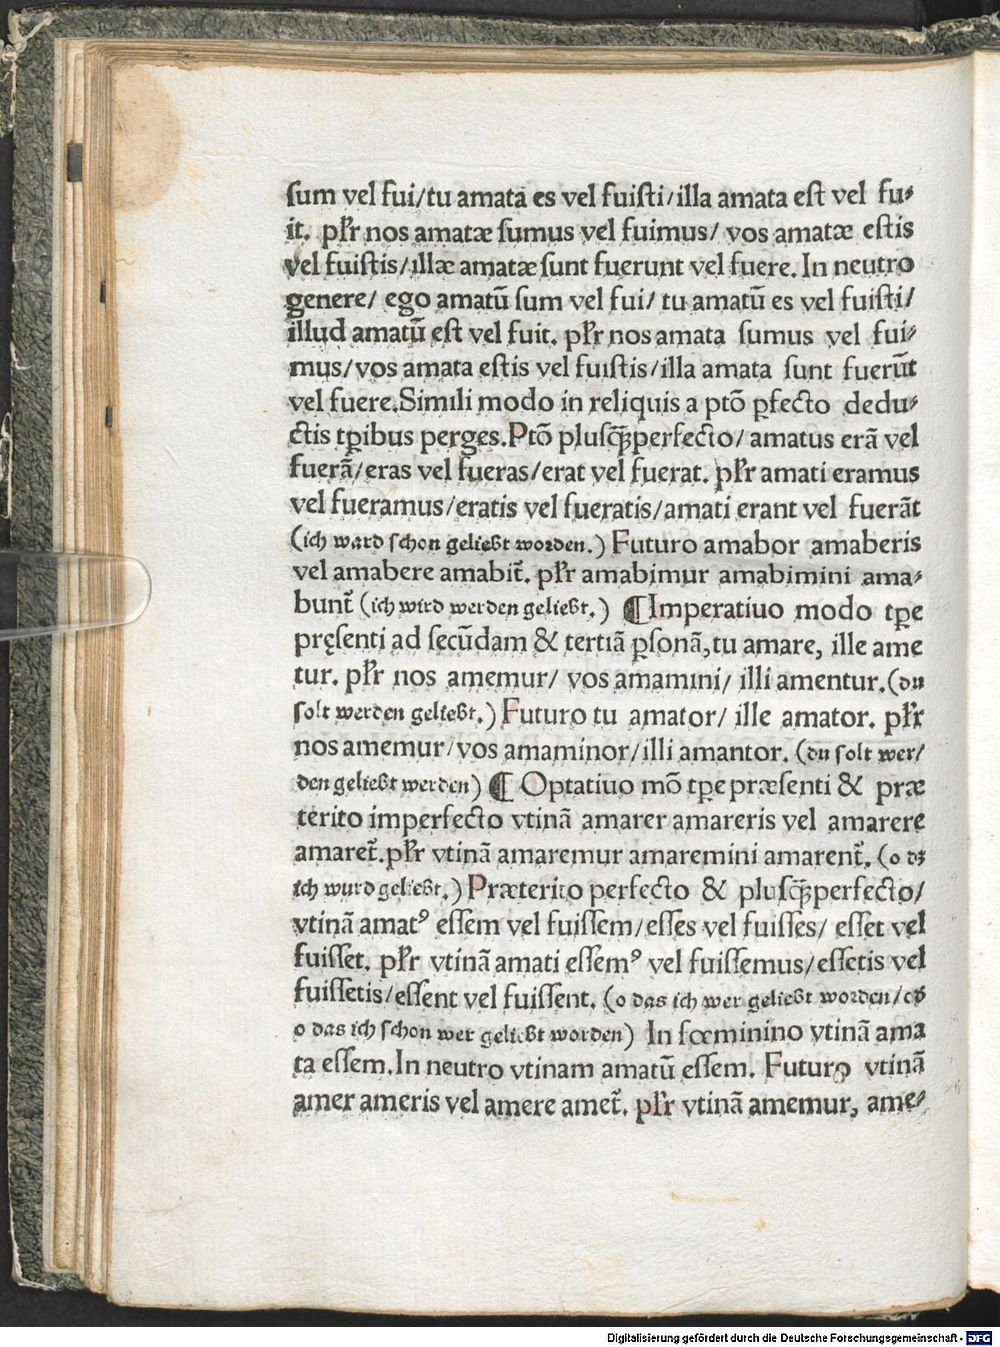 ſum vel fui/tu amata es vel fuiſti/illa amata eſt vel fu⸗
it. pl̃r nos amatæ ſumus vel fuimus/ vos amatæ eſtis
vel fuiſtis/illæ amatæ ſunt fuerunt vel fuere. In neutro
genere/ ego amatū ſum vel fui/ tu amatū es vel fuiſti/
illud amatū eſt vel fuit. pl̃r nos amata ſumus vel fui⸗
mus/vos amata eſtis vel fuiſtis/illa amata ſunt fuerūt
vel fuere.Simili modo in reliquis a ptō ꝑfecto dedu⸗
ctis tꝑibus perges.Ptō pluſꝙ̃perfecto/ amatus erā vel
fuerā/eras vel fueras/erat vel fuerat. pl̃r amati eramus
vel fueramus/eratis vel fueratis/amati erant vel fuerāt
(ich ward ſchon geliebt worden.) Futuro amabor amaberis
vel amabere amabit̃. pl̃r amabimur amabimini ama⸗
bunt̃ (ich wird werden geliebt.) ¶Imperatiuo modo tꝑe
pręſenti ad ſecūdam & tertiā ꝑſonā,tu amare, ille ame
tur. pl̃r nos amemur/ vos amamini/ illi amentur.(du
ſolt werden geliebt.) Futuro tu amator/ ille amator. pl̃r
nos amemur/vos amaminor/illi amantor. (du ſolt wer/
den geliebt werden) ¶ Optatiuo mō tꝑe præſenti & præ
terito imperfecto vtinā amarer amareris vel amarere
amaret̃.pl̃r vtinā amaremur amaremini amarent̃. (o dʒ
ich wurd geliebt.) Præterito perfecto & pluſꝙ̃perfecto/
vtinā amatꝰ eſſem vel fuiſſem/eſſes vel fuiſſes/ eſſet vel
fuiſſet. pl̃r vtinā amati eſſemꝰ vel fuiſſemus/eſſetis vel
fuiſſetis/eſſent vel fuiſſent. (o das ich wer geliebt worden/
o das ich ſchon wer geliebt worden) In fœminino vtinā ama
ta eſſem.In neutro vtinam amatū eſſem. Futuro vtinā
amer ameris vel amere amet̃. pl̃r vtinā amemur, ame⸗
Digitalisierung gefördert durch die Deutsche Forschungsgemeinschaft - DFG